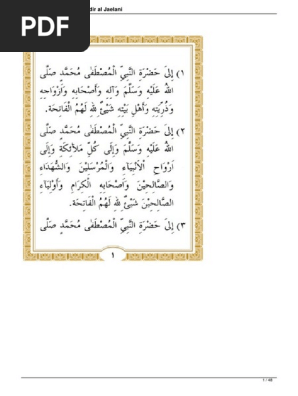 PDF
dir al Jaelani
١) إِلَى حَضْرَةِ النَّبِيِّ الْمُصْطَفَى مُحَمَّدٍ صَلَّى
اللهُ عَلَيْهِ وَسَلَّمَ وَآلِهِ وَأَصْحَابِهِ وَأَزْوَاجِهِ
وَذُرِّيَّتِهِ وَأَهْلِ بَيْتِهِ شَيْئٌ لِلهِ لَهُمُ الْفَاتِحَةُ.
٢) إِلَى حَضْرَةِ النَّبِيِّ الْمُصْطَفَى مُحَمَّدٍ صَلَّى
اللهُ عَلَيْهِ وَسَلَّمَ وَإِلَى كُلِّ مَلَائِكَةِ وَإِلَى
اَرْوَاحِ الْاَنْبِيَاءِ وَالْمُرْسَلِيْنَ وَالشُّهَدَاءِ
وَالصَّالِحِيْنَ وَاَصْحَابِهِ الْكَرَامِ وَأَوْلِيَاءِ
الصَّالِحِيْنَ شَيْئٌ لِلهِ لَهُمُ الْفَاتِحَةُ.
٣) إِلَى حَضْرَةِ النَّبِيِّ الْمُصْطَفَى مُحَمَّدٍ صَلَّى
١
1 / 48